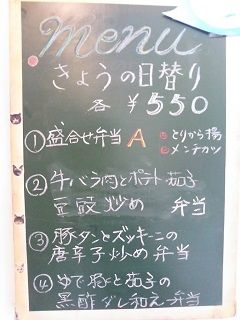 menu
きょうの日替り
各 ¥550
①盛合せ弁当 A ○とりから揚
○メンチカツ
②牛バラ肉とポテト茄子
豆豉炒め 弁当
③豚タンとズッキーニの
唐辛子炒め弁当
④ゆで豚と茄子の
黒酢ダレ和え弁当